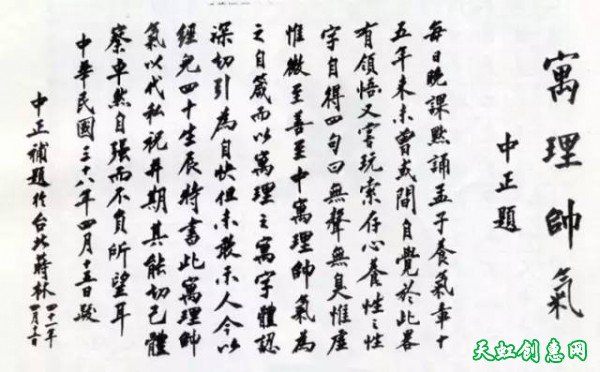 寓理帥氣
中正題
每日晚課默誦孟子養氣章十
五年來未曾或間自覺於此畧
有領悟又嘗玩索存心養性之性
字自得四句曰無聲無臭惟虛
惟微至善至中寓理帥氣為
之自箴而以寓理之寓字體認
深切引為自快但未敢示人今以
經兒四十生辰特書此寓理帥
氣以代私祝并期其能切己體
察卓然自強而不負所望耳
中華民國三十八年四月十五日
中正補題於台北林
四十一年
天虹创意网